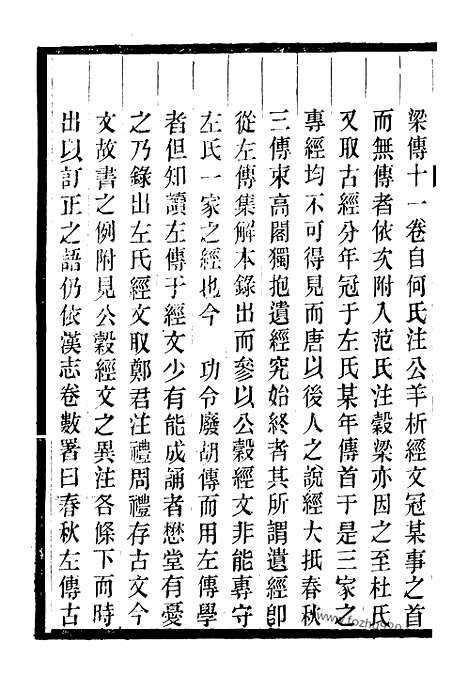 梁傳十一卷自何氏注公羊析經文冠某事之首
而無傳者依次附入范氏注穀梁亦因之至杜氏
又取古經分年冠于左氏某年傳首于是三家之
專經均不可得見而唐以後人之說經大抵春秋
三傳束高閣獨抱遺經究始終者其所謂遺經卽
從左傳集解本錄出而參以公穀經文非能專守
左氏一家之經也今 功令廢胡傳而用左傳學
者但知讀左傳于經文少有能成誦者懋堂有憂
之乃錄出左氏經文取鄭君注禮周禮存古文今
文故書之例附見公穀經文之異注各條下而時
出以訂正之語仍依漢志卷數署曰春秋左傳古
www.fozhu920.com